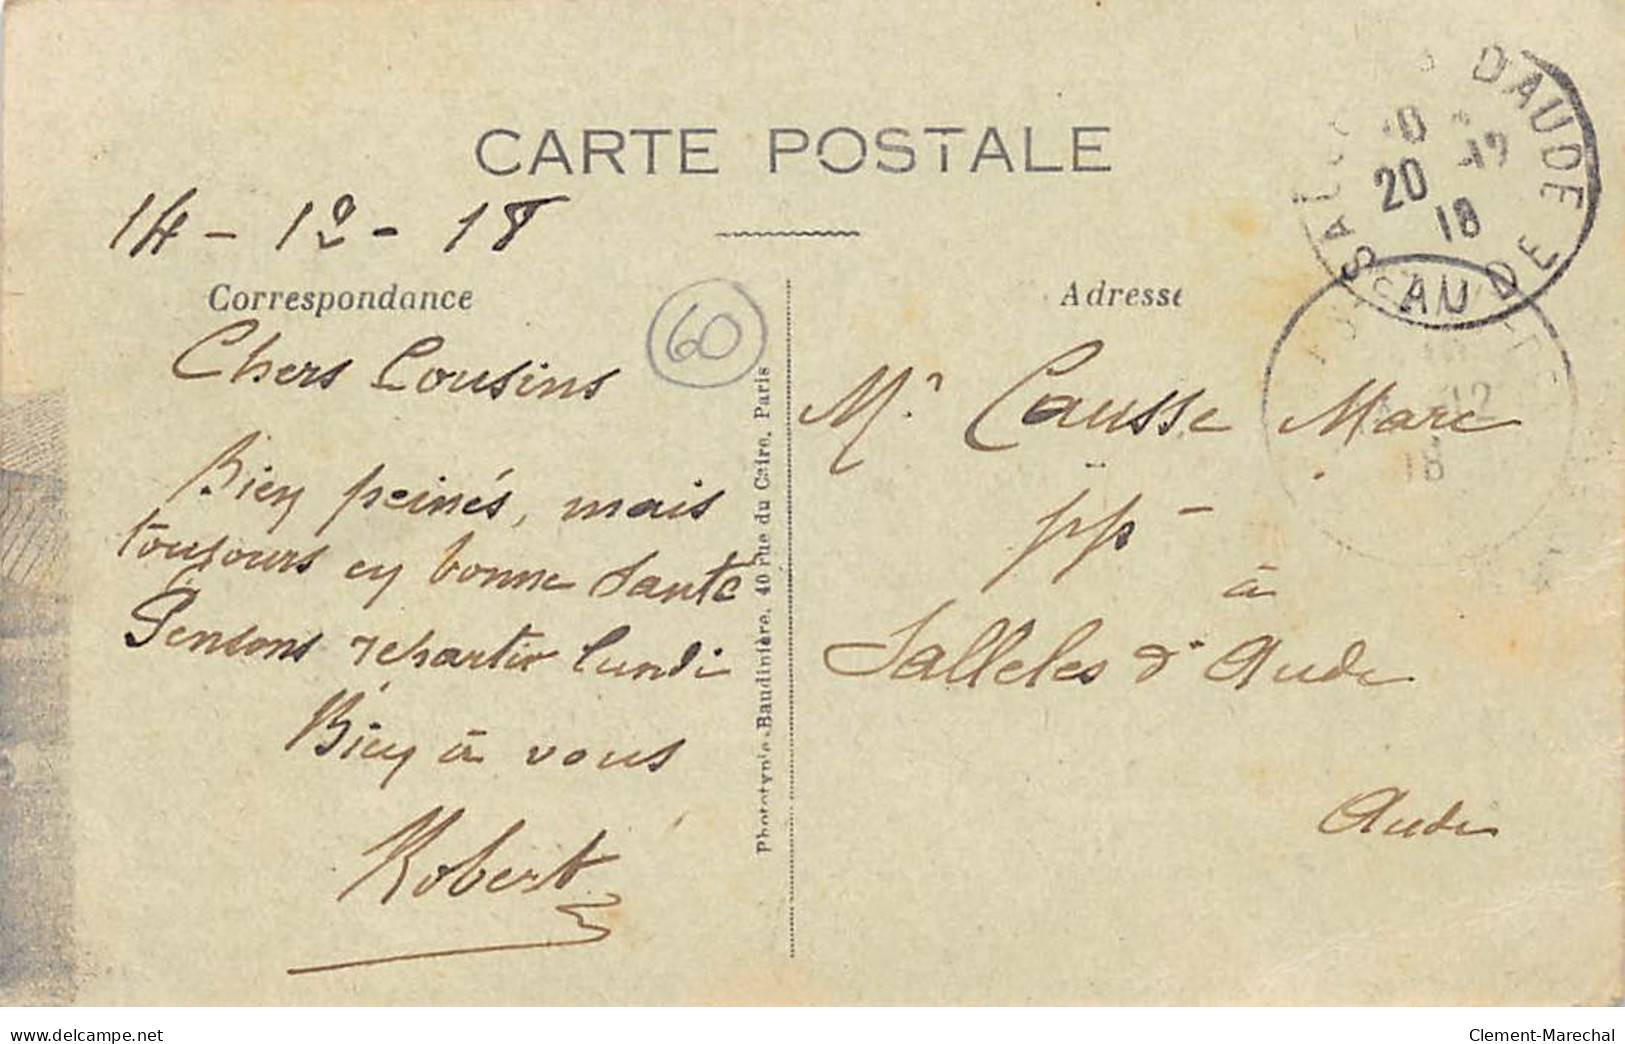 CARTE POSTALE
14 - 12 - 18
Correspondance
Chers Cousins
60
Bien peinés, mais
toujours en bonne santé
Pensons repartir lundi
Bien à vous
Robert
Phototypie-Baudinière, 40 rue du Caire, Paris
Adresse
Mr Causse Marc
pp-
à
Salleles d'Aude
Aude
D'AUDE
20 -12
18
AUDE
12
18
www.delcampe.net
Clement-Marechal